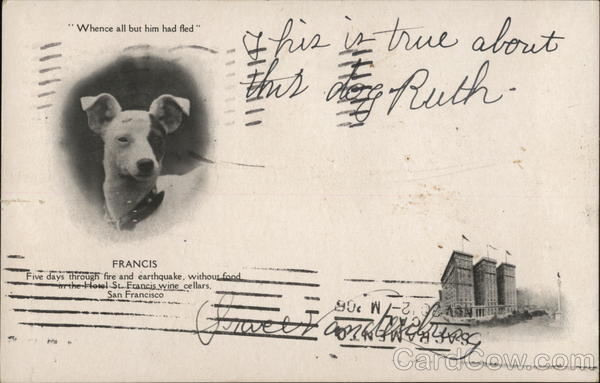 "Whence all but him had fled"
This is true about
this dog Ruth.
FRANCIS
Five days through fire and earthquake, without food
in the Hotel St. Francis wine cellars,
San Francisco
SACRAMENTO
CardCow.com